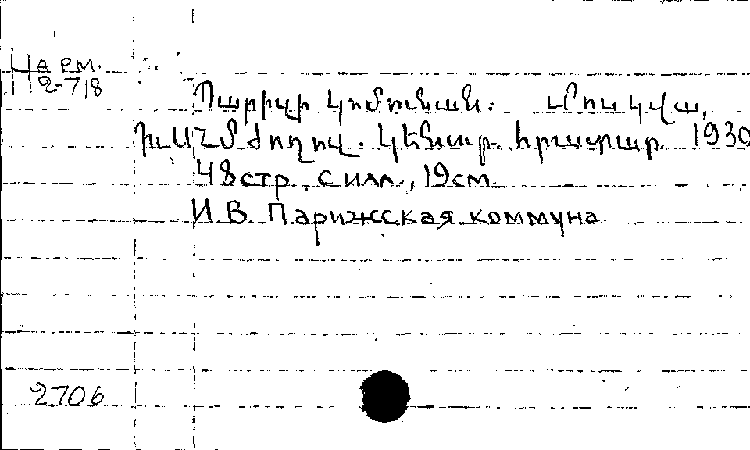 На арм.
2-718
Պարիզի կոմունան. Մոսկվա,
ԽՍՀՄ ժողով. կենտր. հրատար. 1930
48стр. с илл., 19см
И.В. Парижсская коммуна
2706